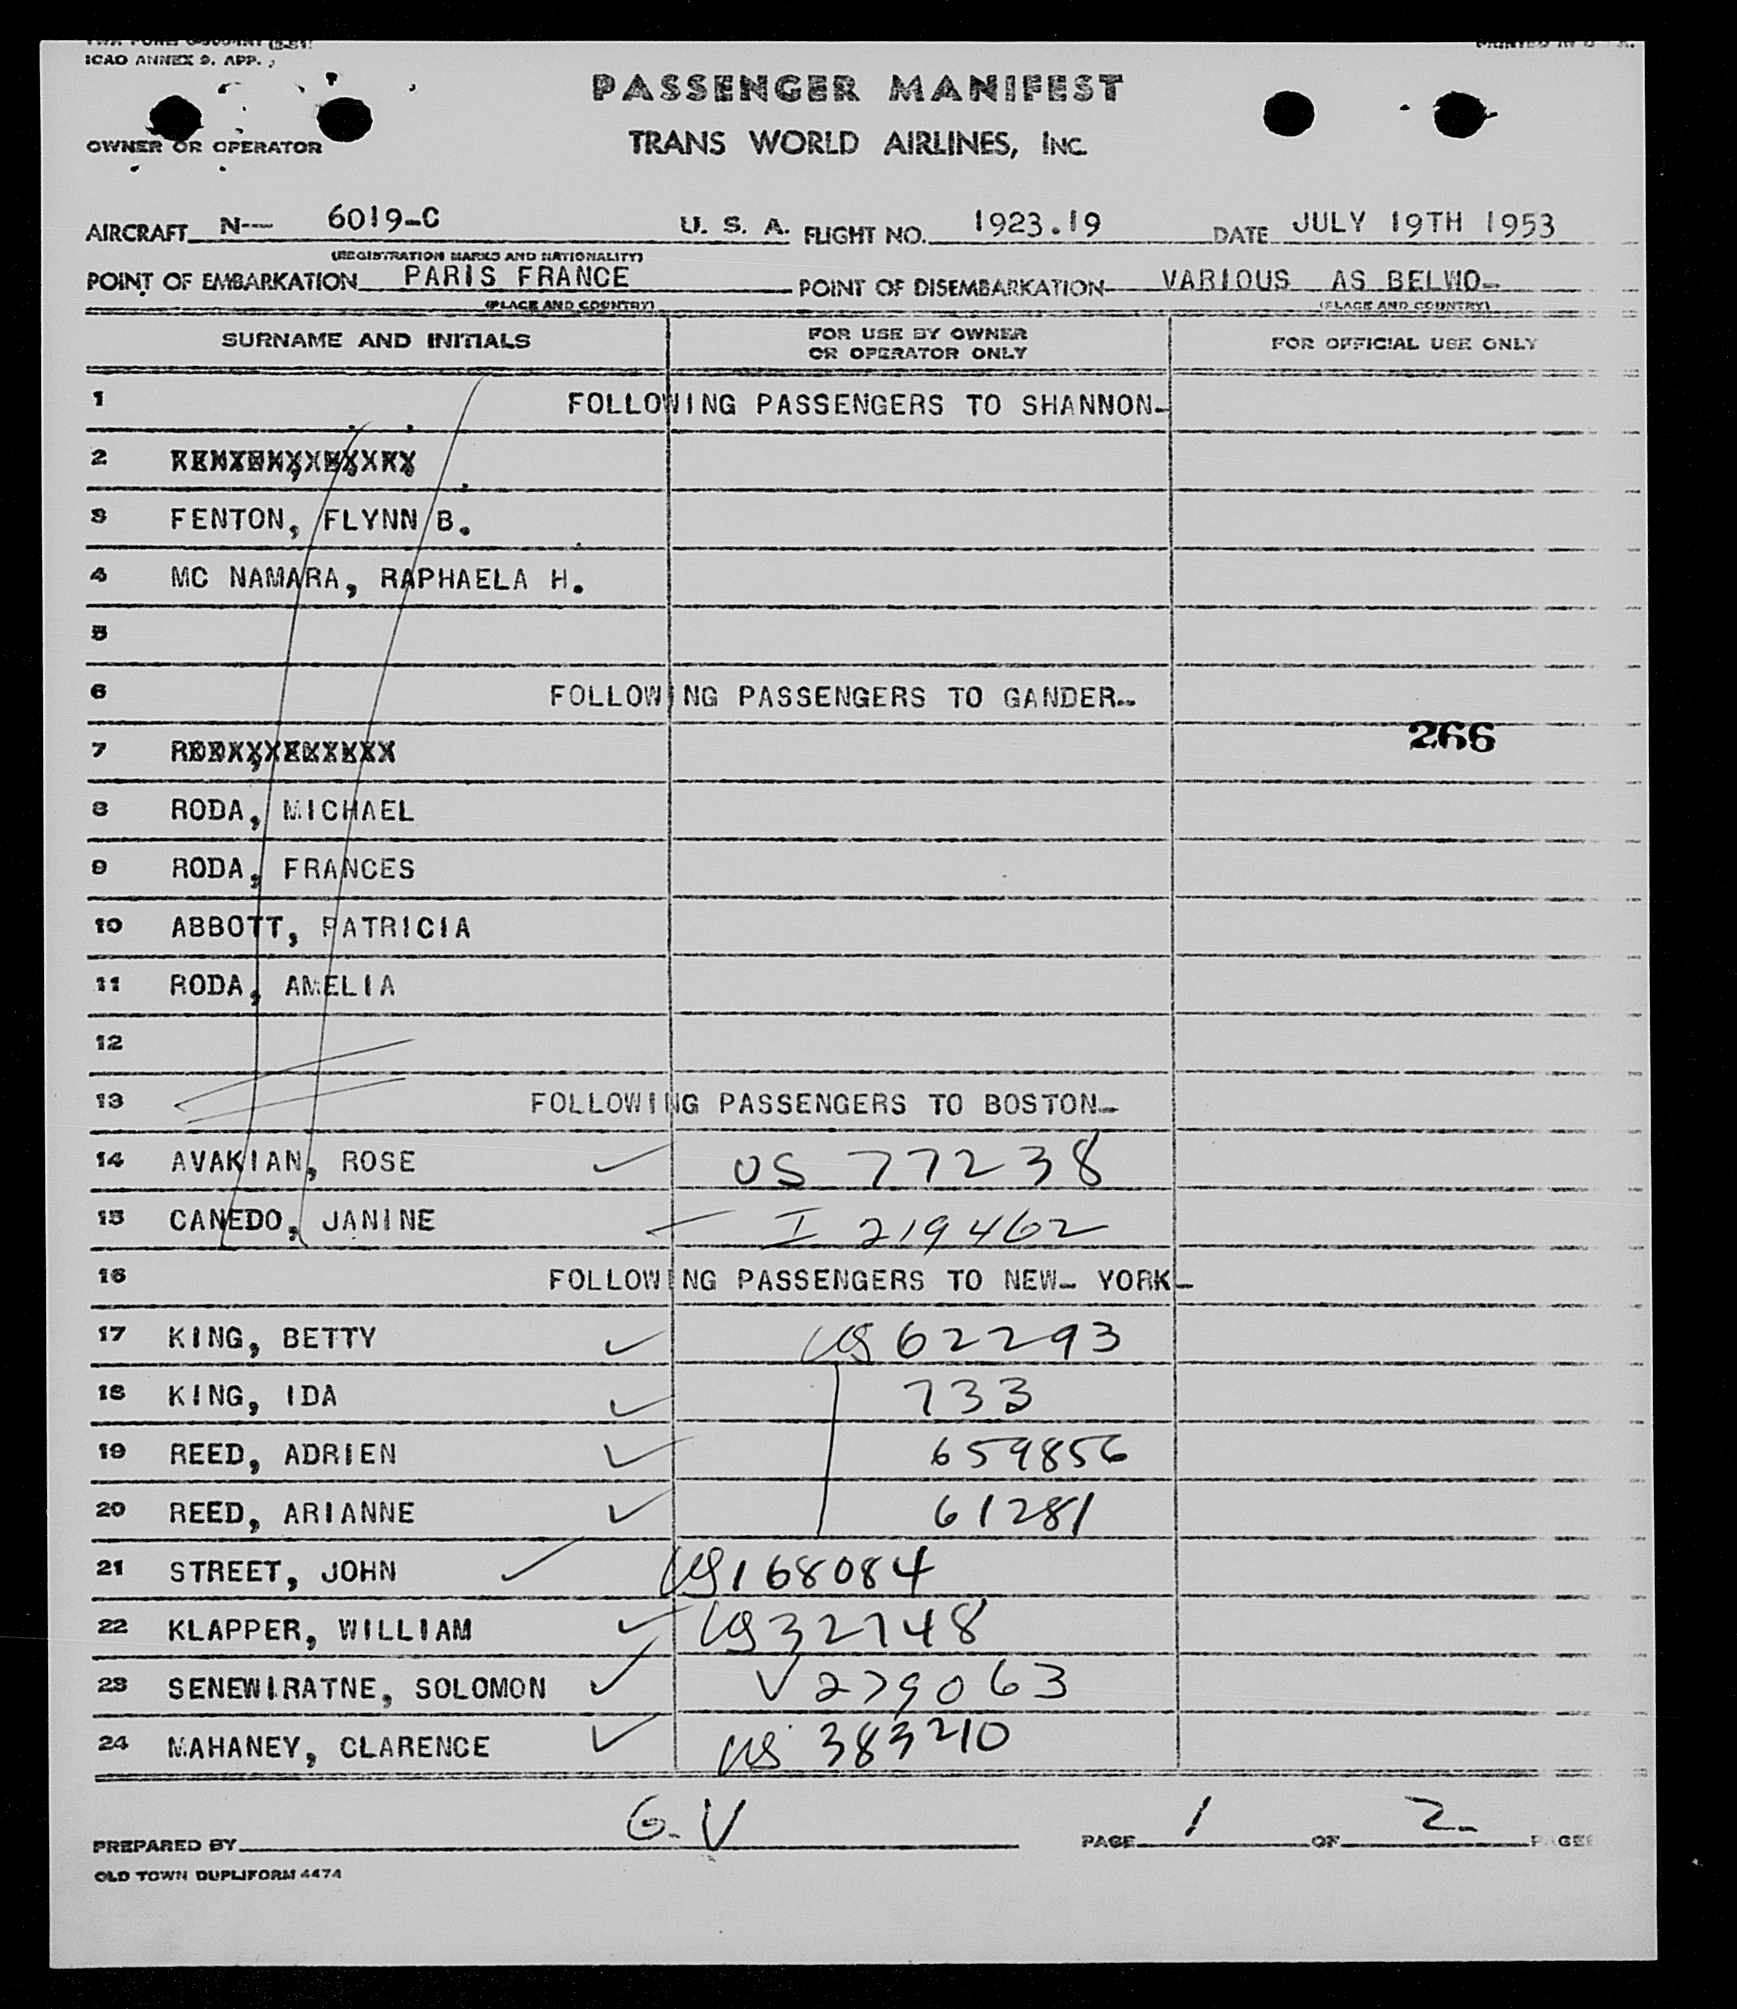 ICAO ANNEX 9. APP.
PASSENGER MANIFEST
OWNER OR OPERATOR
TRANS WORLD AIRLINES, INC.
AIRCRAFT N-- 6019-C U. S. A. FLIGHT NO. 1923.19 DATE JULY 19TH 1953
(REGISTRATION MARKS AND NATIONALITY)
POINT OF EMBARKATION PARIS FRANCE POINT OF DISEMBARKATION VARIOUS AS BELWO-
(PLACE AND COUNTRY) (PLACE AND COUNTRY)
SURNAME AND INITIALS FOR USE BY OWNER OR OPERATOR ONLY FOR OFFICIAL USE ONLY
1 FOLLOWING PASSENGERS TO SHANNON-
2
3 FENTON, FLYNN B.
4 MC NAMARA, RAPHAELA H.
5
6 FOLLOWING PASSENGERS TO GANDER--
266
7
8 RODA, MICHAEL
9 RODA, FRANCES
10 ABBOTT, PATRICIA
11 RODA, AMELIA
12
13 FOLLOWING PASSENGERS TO BOSTON-
14 AVAKIAN, ROSE ✓ US 77238
15 CANEDO, JANINE ✓ I 219462
16 FOLLOWING PASSENGERS TO NEW- YORK-
17 KING, BETTY ✓ US 62293
18 KING, IDA ✓ 733
19 REED, ADRIEN ✓ 659856
20 REED, ARIANNE ✓ 61281
21 STREET, JOHN ✓ US 168084
22 KLAPPER, WILLIAM ✓ US 32748
23 SENEWIRATNE, SOLOMON ✓ V 279063
24 MAHANEY, CLARENCE ✓ US 383210
PREPARED BY G. V PAGE 1 OF 2- PAGES
OLD TOWN DUPLIFORM 4474